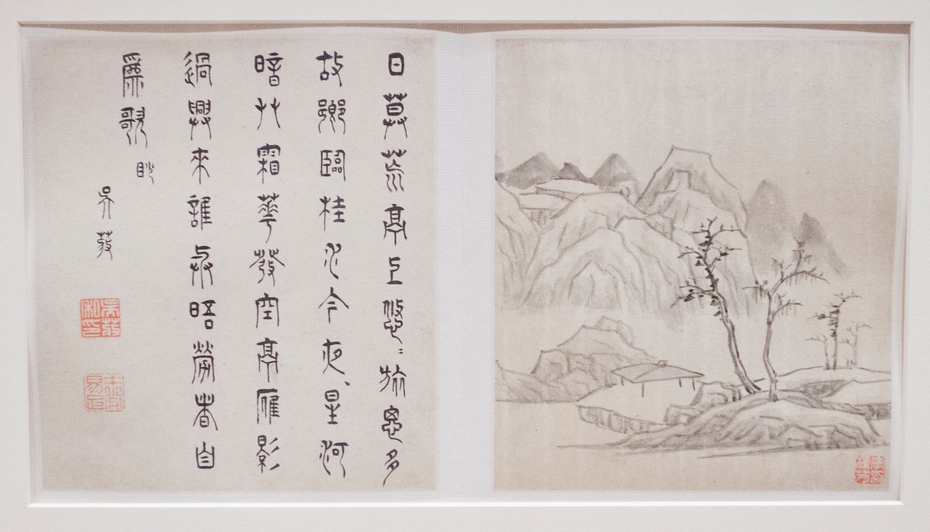 日莫荒亭上悠=旅思多
故鄉臨桂水今夜、星河
暗艸霜華發空亭雁影
過興來誰與晤勞者自
爲歌 眇
吳